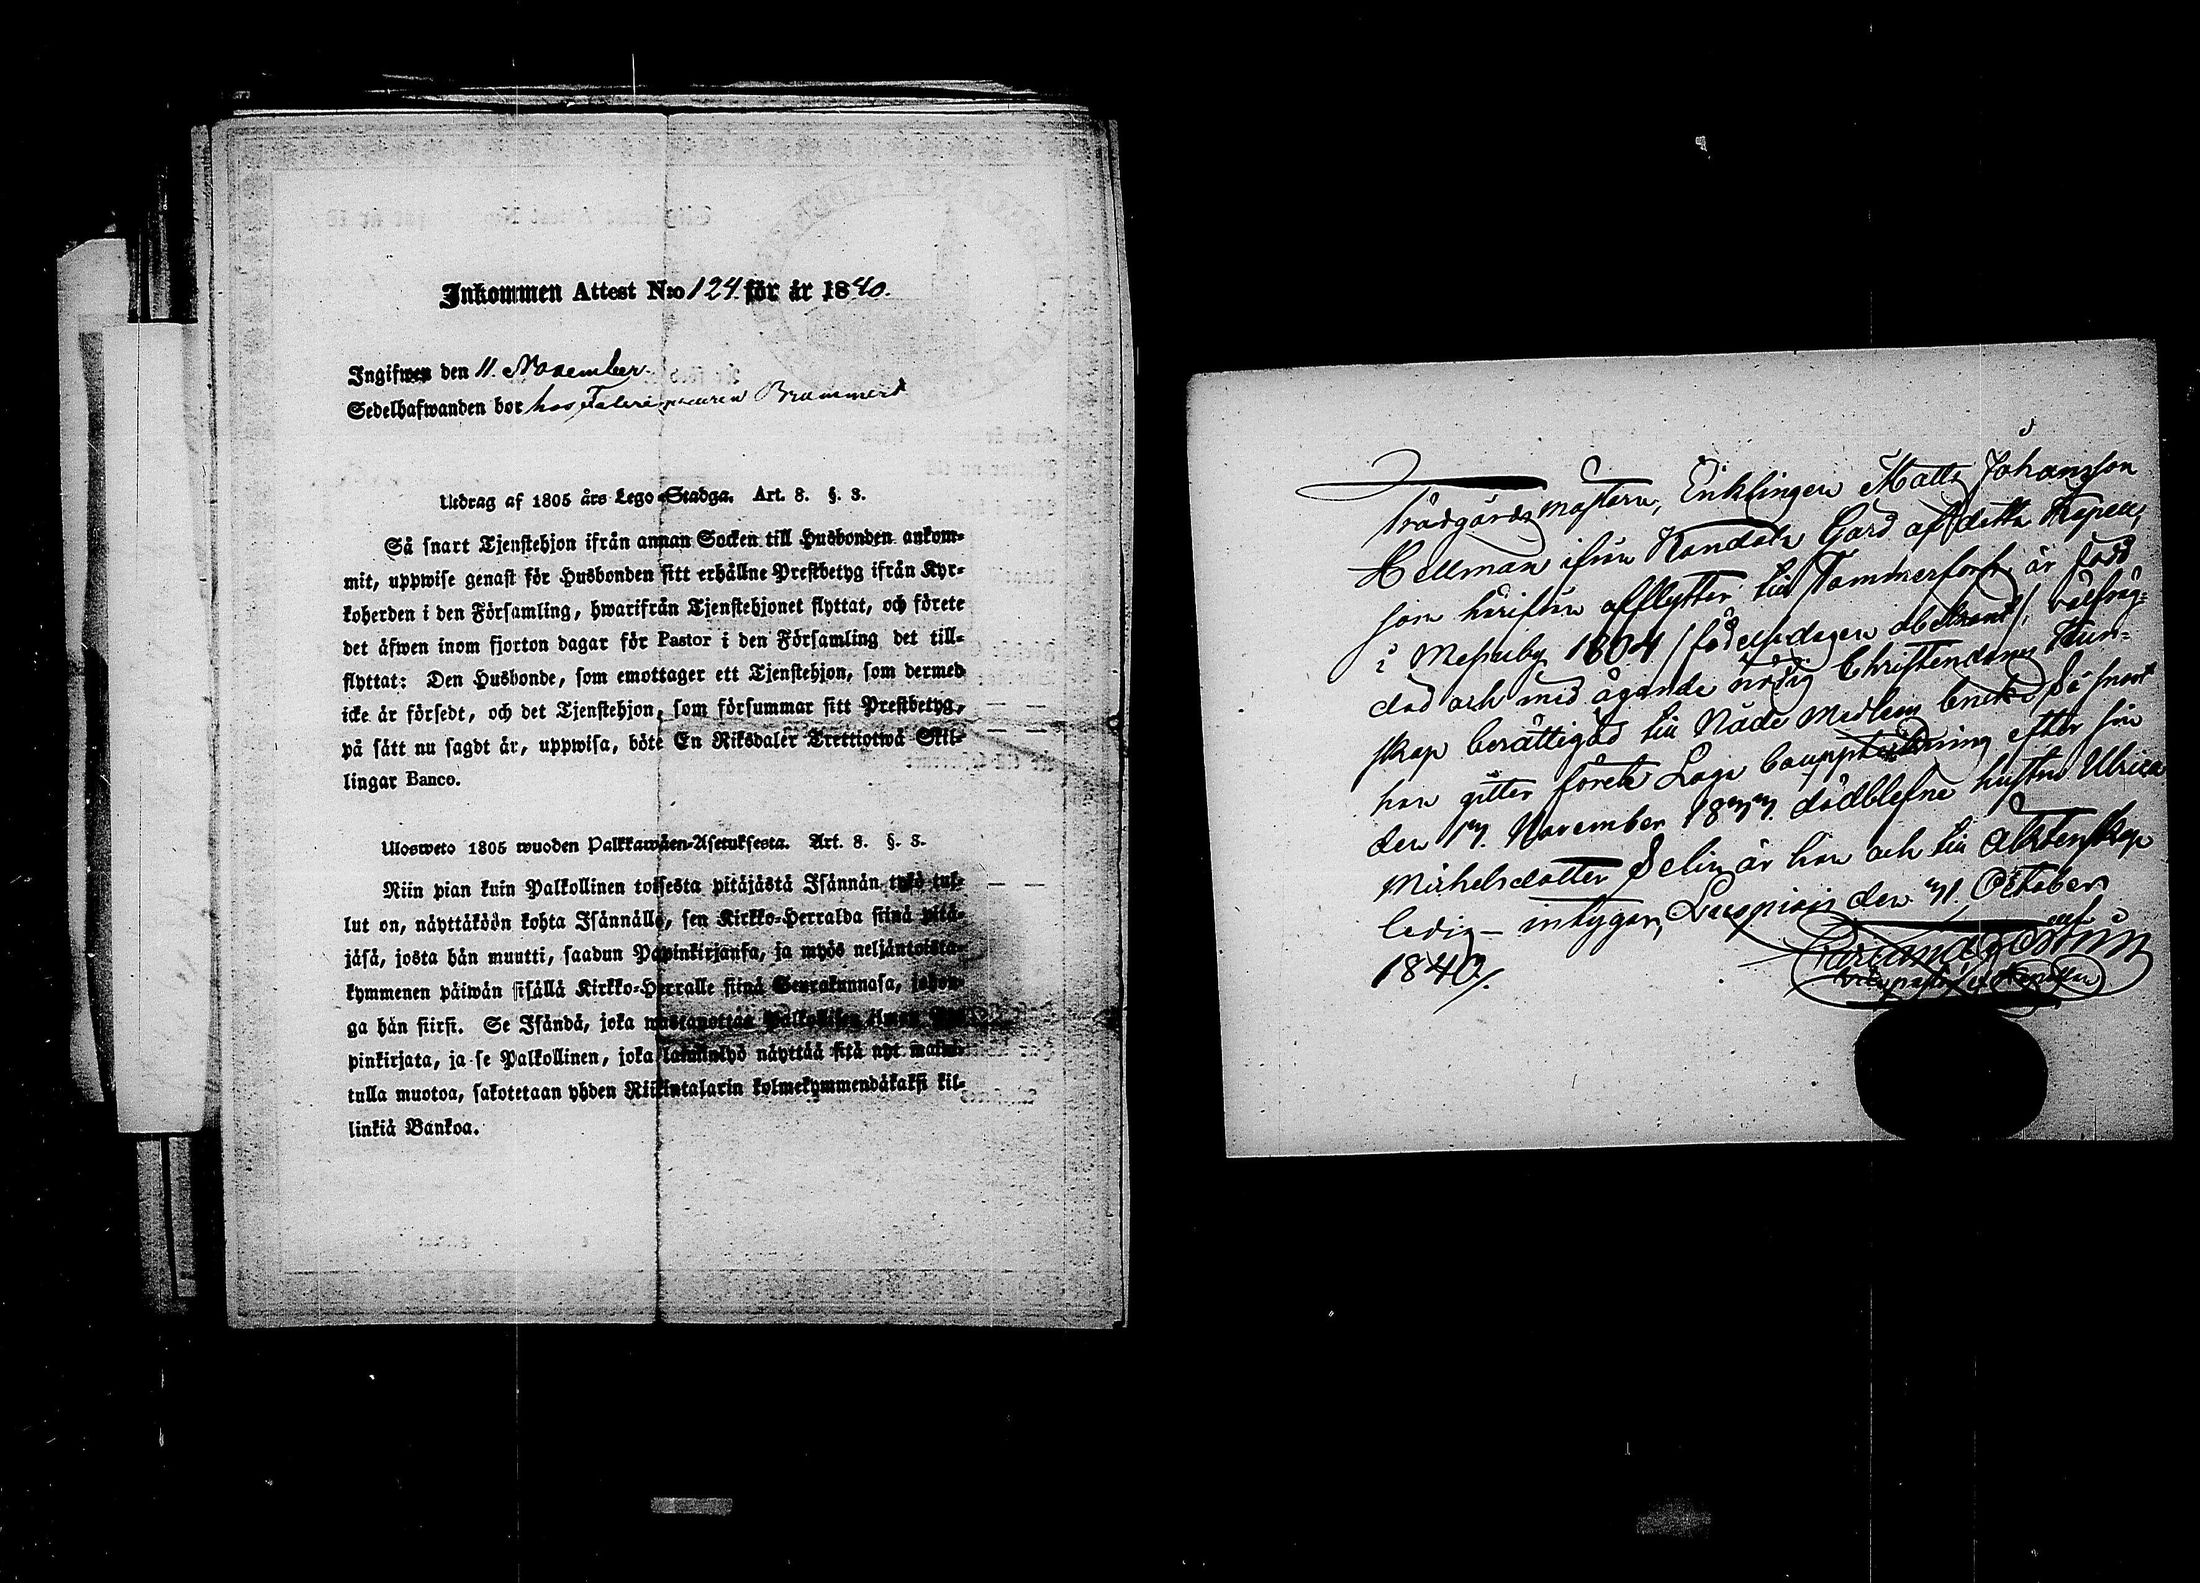 Inkommen Attest N:o 124. för år 1840.
Ingifwen den 11. November.
Sedelhafwanden bor hos Brummerd
Utdrag af 1805 års Lego-Stadga. Art. 8. §. 3.
Så snart Tjenstehjon ifrån annan Socken till Husbonden ankom-
mit, uppwise genast för Husbonden sitt erhållne Prestbetyg ifrån Kyr-
koherden i den Församling, hwarifrån Tjenstehjonet flyttat, och förete
det äfwen inom fjorton dagar för Pastor i den Församling det till-
flyttat: Den Husbonde, som emottager ett Tjenstehjon, som dermed
icke är försedt, och det Tjenstehjon, som försummar sitt Prestbetyg,
på sätt nu sagdt är, uppwisa, böte En Riksdaler Trettiotwå Skil-
lingar Banco.
Ulosweto 1805 wuoden Palkkawäen-Asetuksesta. Art. 8. §. 3.
Niin pian kuin Palkollinen toisesta pitäjästä Isännän tykö tul-
lut on, näyttäköön kohta Isännälle, sen Kirkko-Herralda siinä pitä-
jäsä, josta hän muutti, saadun Papinkirjansa, ja myös neljäntoista-
kymmenen päiwän sisällä Kirkko-Herralle siinä Seurakunnasa, johon-
ga hän siirsi. Se Isändä, joka wastanottaa Palkollisen ilman
pinkirjata, ja se Palkollinen, joka laiminlyö näyttää sitä nyt mainit-
tulla muotoa, sakotetaan yhden Riikintalarin kolmekymmendäkaksi kil-
linkiä Bankoa.
Trädgårdsmästaren, Enklingen Matts Johansson
Hellman ifrån Gård af detta Capell,
som härifrån afflyttar till Tammerfors, är född
i Messuby 1804 /födelsedagen obekant/, välfräg-
dad och med ägande nödig Christendoms kun-
skap berättigad till Nåde Medlens bruk. Så snart
han gitter förete Laga bouppteckning efter sin
den 17. November 1837. dödblefne hustru Ulrica
Michelsdotter Selin är han och till Äktenskap
ledig – intygar, Lauspiais den 31. October
1840.